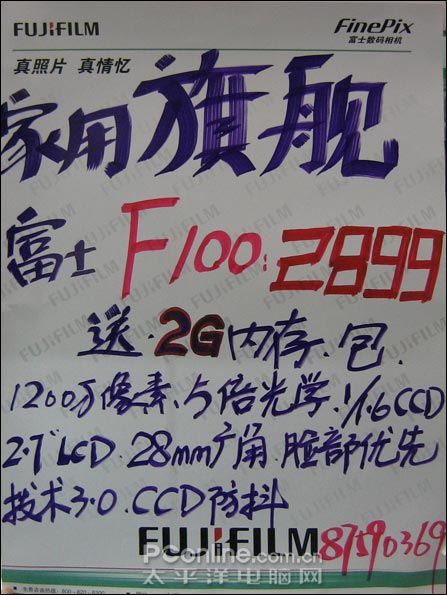 FUJIFILM FinePix
富士数码相机
真照片 真情忆
家用旗舰
富士 F100:2899
送.2G内存.包.
1200万像素、5倍光学、1/1.6CCD
2.7"LCD.28mm广角.脸部优先
技术3.0.CCD防抖
FUJIFILM 87590369
PConline.com.cn
太平洋电脑网
免费咨询热线:800-820-6300